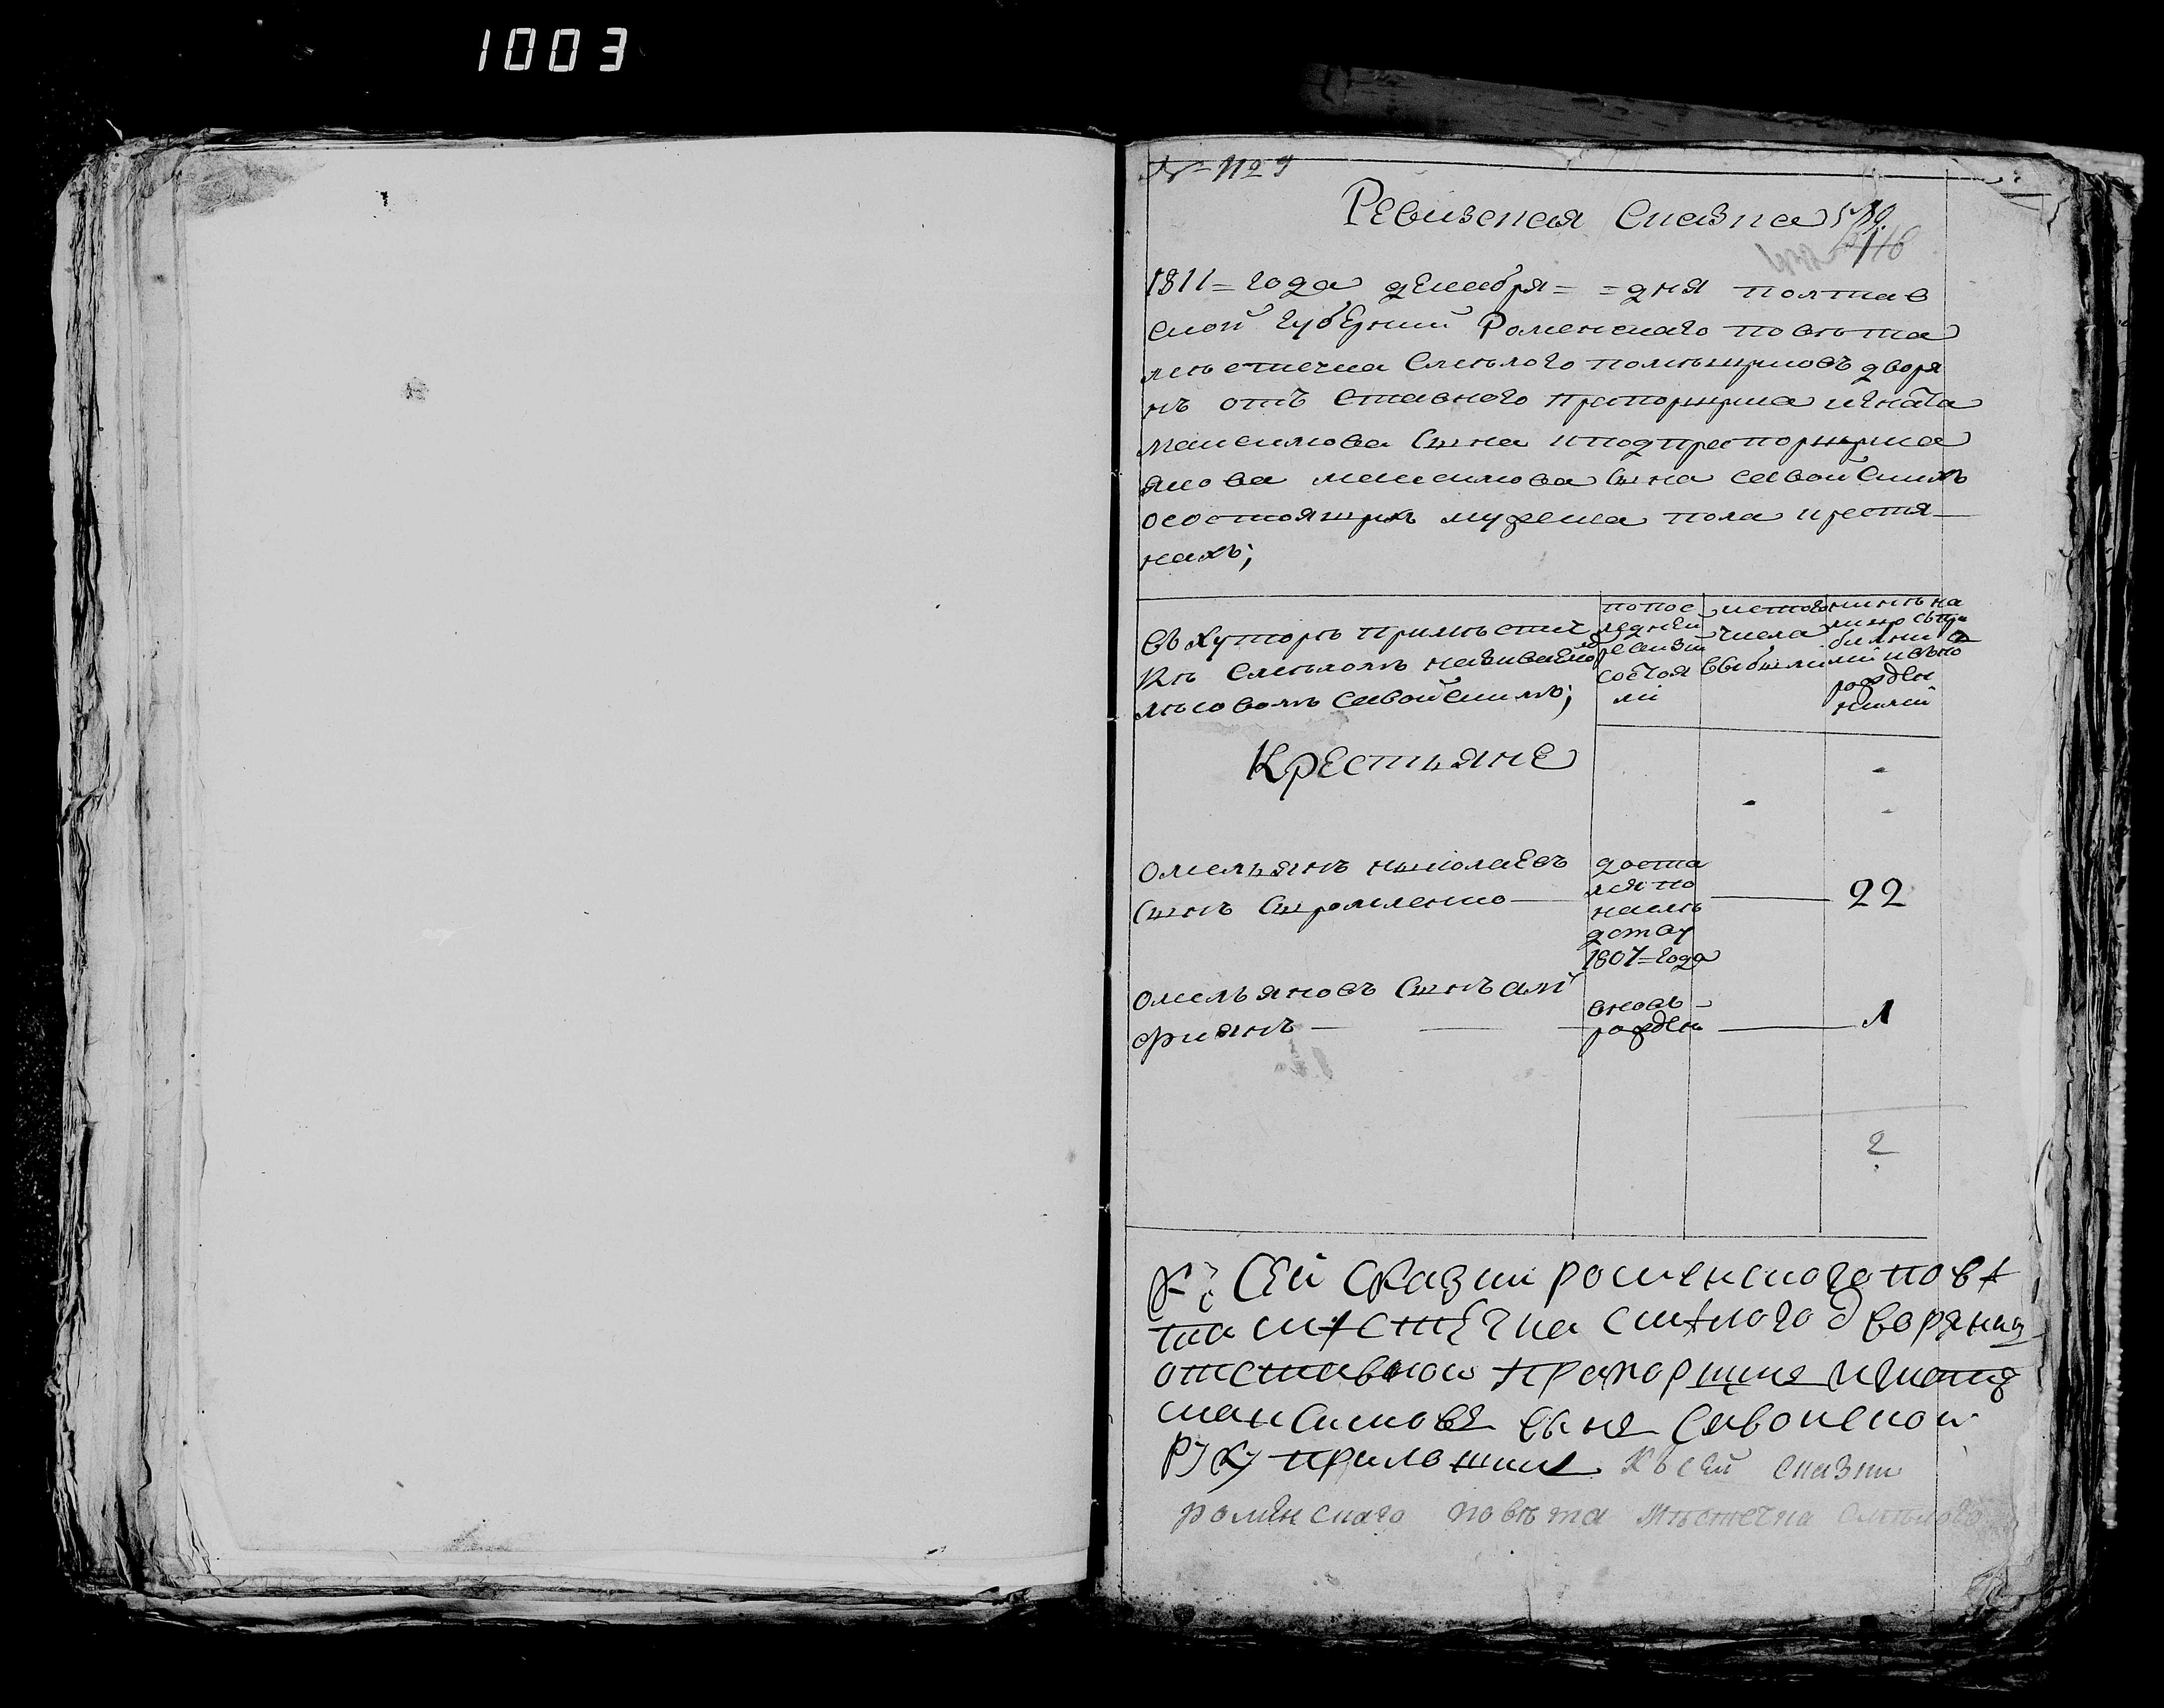 1003
№ 1129
Ревизская Сказка
1811 = года декабря = = дня полтав
ской губернии Роменскаго повѣта
мѣстечка Смѣлого помѣщиковъ дворя
нъ отъ Ставного прапорщика игната
максимова Сына и подпрапорщика
якова максимова Сына савойскихъ
осостоящихъ мужеска пола крестя
нахъ;
въ хуторѣ при мѣстич
кѣ Смѣломъ называемо
мъ савойскимъ;
попос
ледней
ревизіи
состоя
ли
истого
числа
выбыли
нинѣ на
лицо съ при
былими и
вно
рожден
ними
Крестьяне
Омельянъ николаевъ
Сынъ Сыромленко
доста
лся по
наслѣ
дству
1807 = года
22
Омельяновъ Сынъ ан
фиянъ
вновь
рожденъ
1
2
Къ Сей Сказки роменского повѣ
та мѣстечка смѣлого дворянин
отставной прапорщик игнатъ
максимовъ сынъ Савойской
руку приложилъ Къ сей сказки
роменскаго повѣта мѣстечка Смѣлого